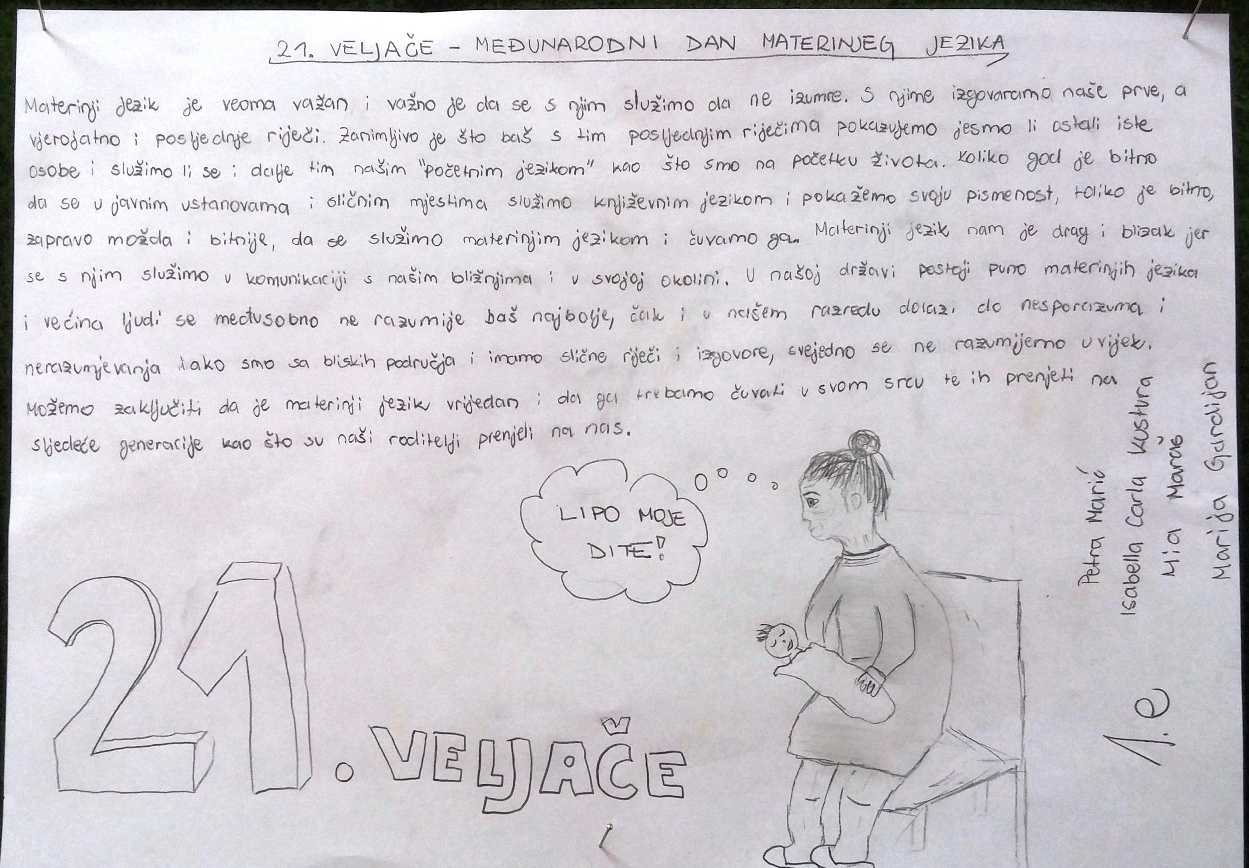 21. VELJAČE - MEĐUNARODNI DAN MATERINJEG JEZIKA
Materinji jezik je veoma važan i važno je da se s njim služimo da ne izumre. S njime izgovaramo naše prve, a
vjerojatno i posljednje riječi. Zanimljivo je što baš s tim posljednjim riječima pokazujemo jesmo li ostali iste
osobe i služimo li se i dalje tim našim "početnim jezikom" kao što smo na početku života. Koliko god je bitno
da se u javnim ustanovama i sličnim mjestima služimo književnim jezikom i pokažemo svoju pismenost, toliko je bitno,
zapravo možda i bitnije, da se služimo materinjim jezikom i čuvamo ga. Materinji jezik nam je drag i blizak jer
se s njim služimo u komunikaciji s našim bližnjima i u svojoj okolini. U našoj državi postoji puno materinjih jezika
i većina ljudi se međusobno ne razumije baš najbolje, čak i u našem razredu dolazi do nesporazuma i
nerazumjevanja iako smo sa bliskih područja i imamo slične riječi i izgovore, svejedno se ne razumijemo uvijek.
Možemo zaključiti da je materinji jezik vrijedan i da ga trebamo čuvati u svom srcu te ih prenjeti na
sljedeće generacije kao što su naši roditelji prenjeli na nas.
LIPO MOJE
DITE!
21. VELJAČE
Petra Marić
Isabella Carla Kustura
Mia Maraš
Marija Gardijan
1.e